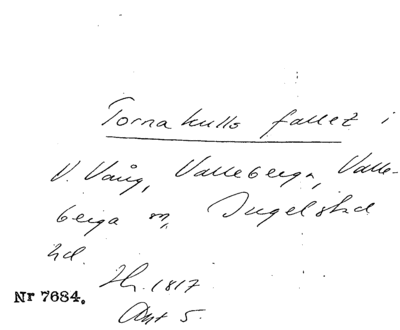 Tornakulls fallet i
V. Vång, Valleberga, Valle-
berga sn, Ingelstad
hd.
Hr. 1817
Akt 5.
Nr 7684.